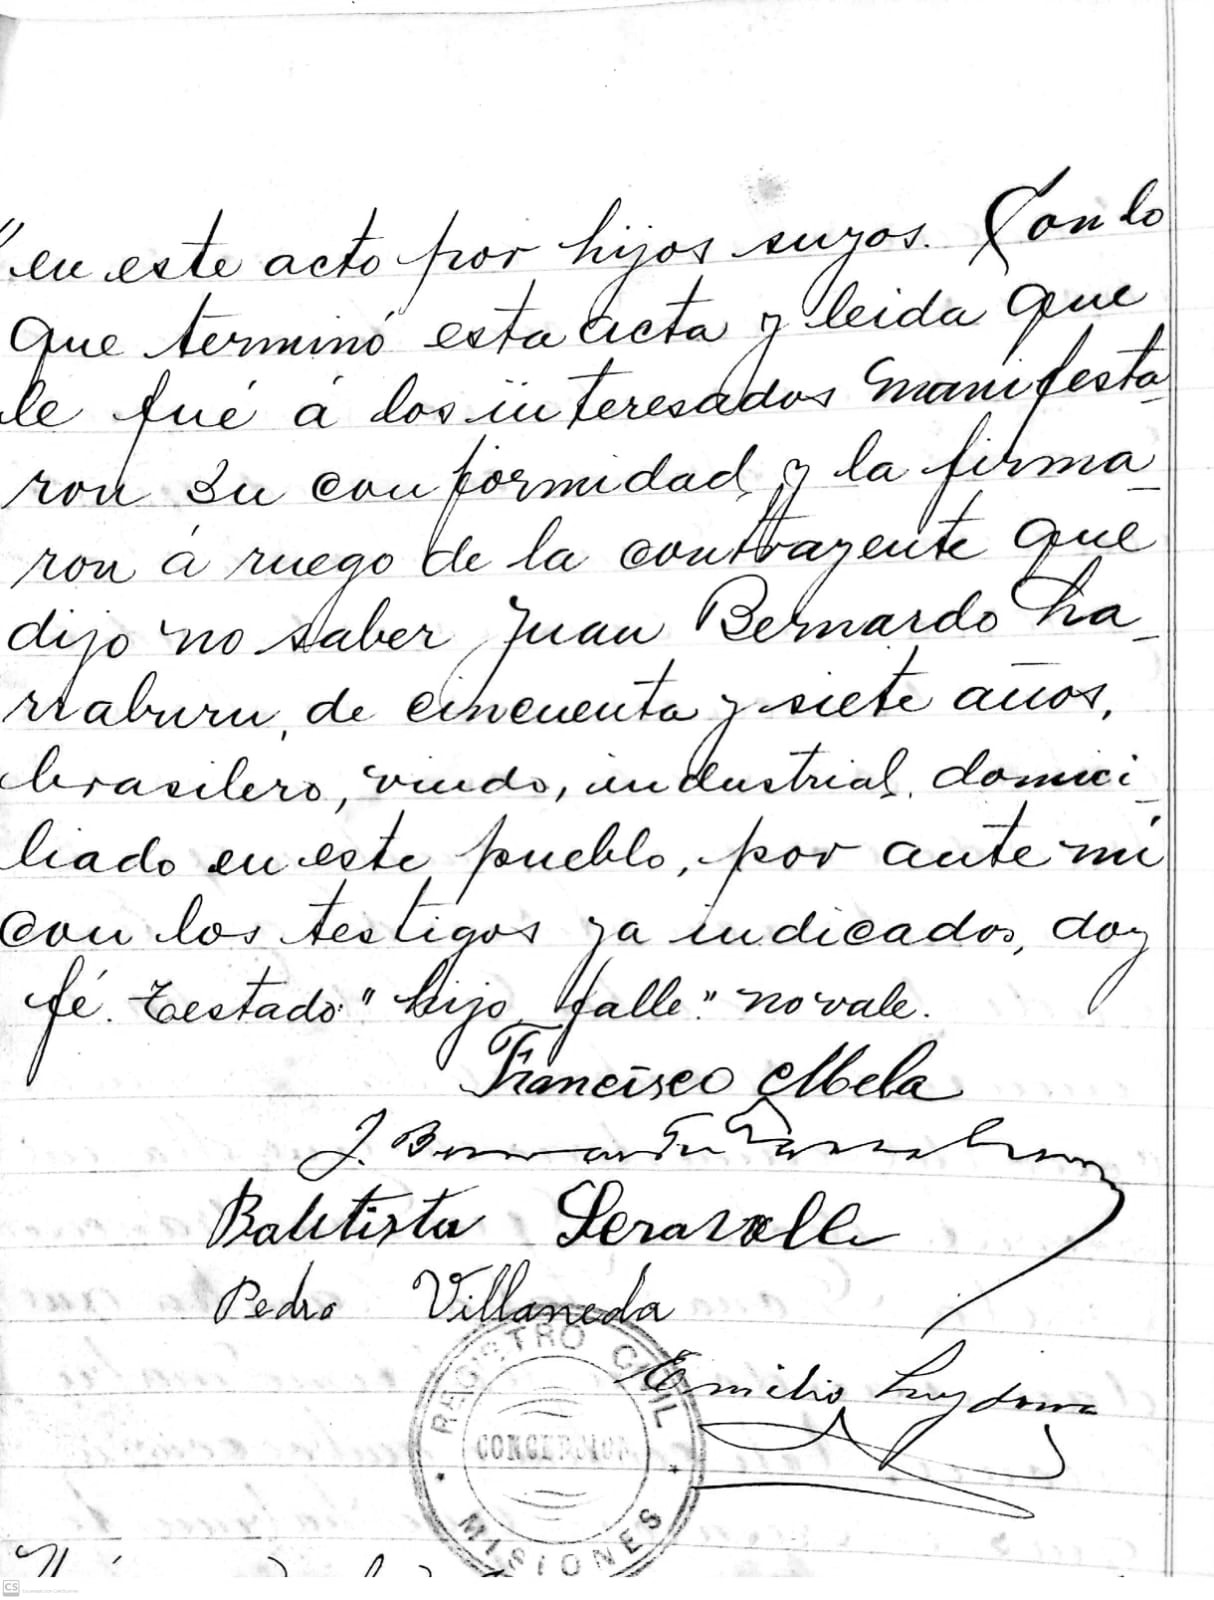 " en este acto por hijos suyos. Con lo
que terminó esta acta y leida que
le fué á los interesados manifesta-
ron su conformidad y la firma-
ron á ruego de la contrayente que
dijo no saber Juan Bernardo La-
rraburu, de cincuenta y siete años,
brasilero, viudo, industrial, domici-
liado en este pueblo, por ante mi
con los testigos ya indicados, doy
fé. Testado: "hijo falle" no vale.
Francisco Mela
J. Bernardo Larraburu
Bautista Seravalle
Pedro Villaneda
Emilio
REGISTRO CIVIL
CONCEPCION
MISIONES
CS